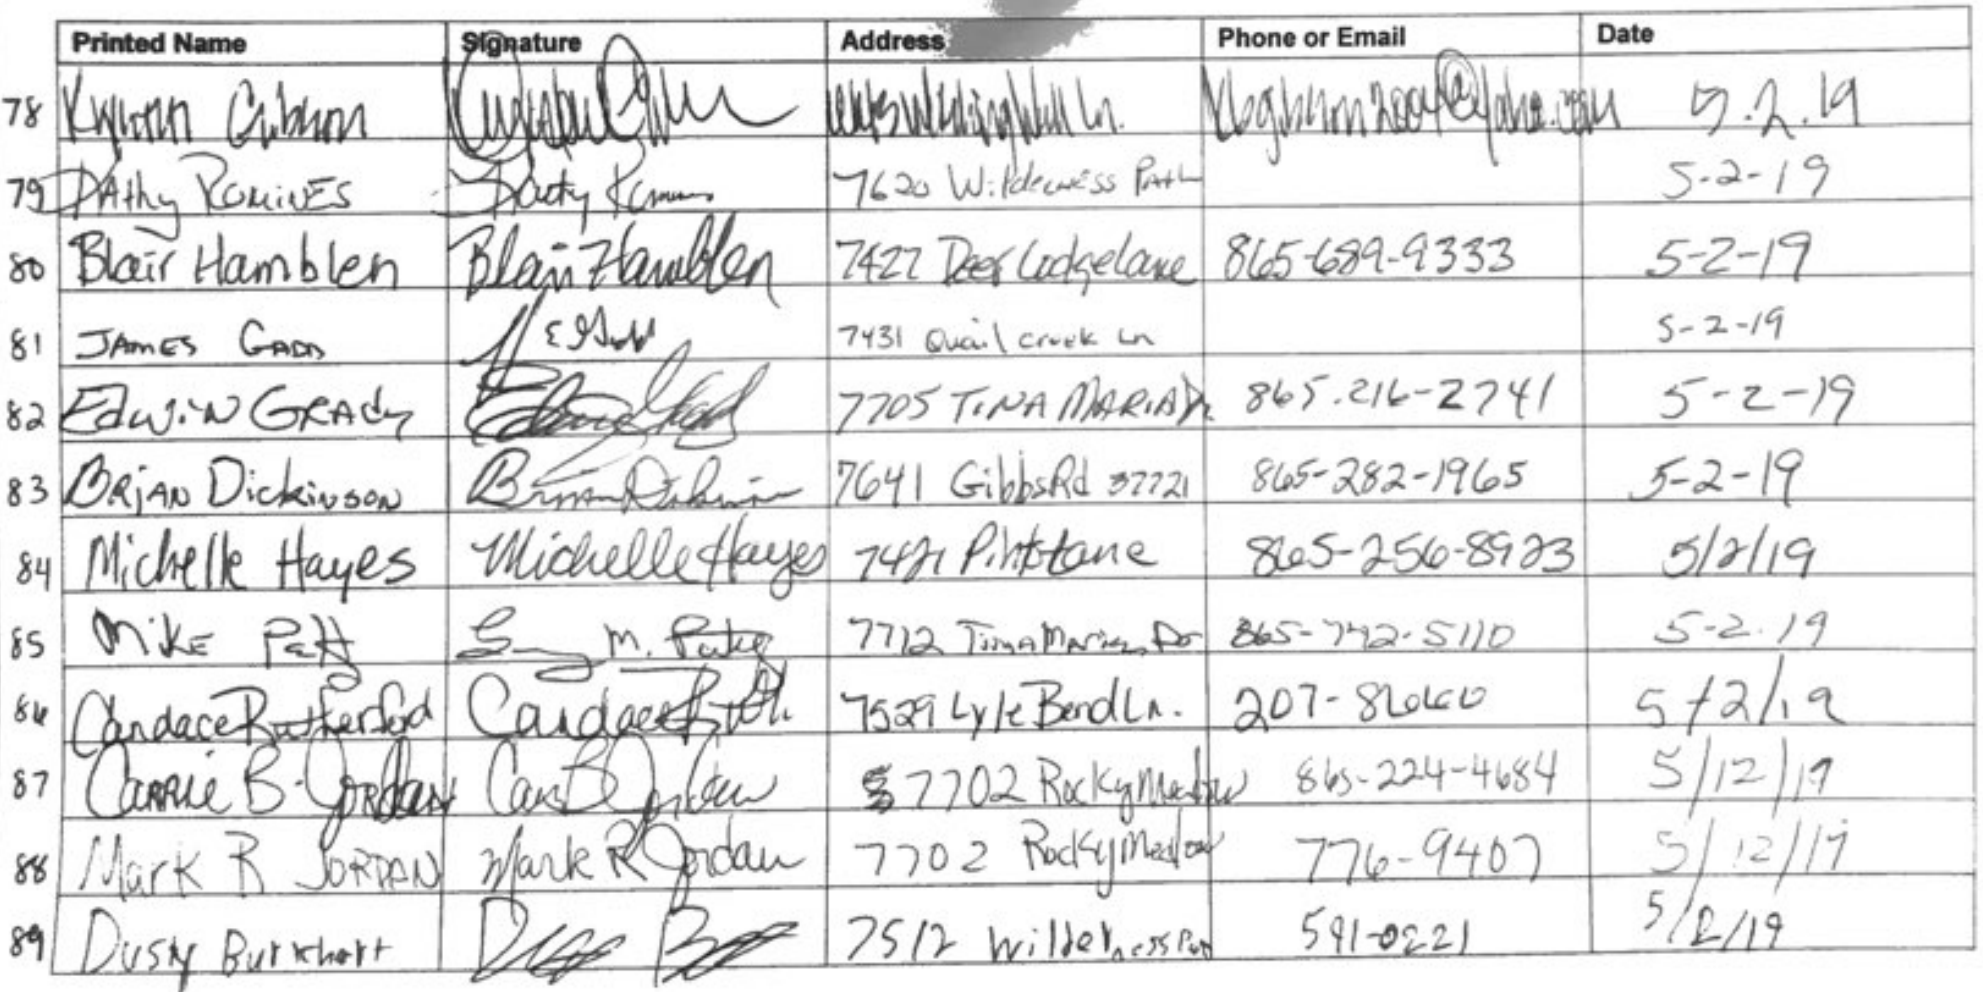 Printed Name Signature Address Phone or Email Date
78 Gibson Ln. 5.2.19
79 PAthy ROMINES 7620 Wilderness Path 5-2-19
80 Blair Hamblen Blair Hamblen 7427 Deer Lodge Lane 865-689-9333 5-2-19
81 JAMES GADD 7431 Quail creek Ln 5-2-19
82 EdwiN GRAdy 7705 TINA MARIA Dr. 865.216-2741 5-2-19
83 BRiAN DickiNSON Brian Dickinson 7641 Gibbs Rd 37721 865-282-1965 5-2-19
84 Michelle Hayes Michelle Hayes 7421 Pinto Lane 865-256-8923 5/2/19
85 MiKE Patty M. Patty 7712 Tina Maria Dr 865-742-5110 5-2-19
86 Candace Rutherford Candace 7529 Lyle Bend Ln. 207-8660 5/2/19
87 CARRIE B. JORDAN 7702 Rocky Meadow 865-224-4684 5/12/19
88 Mark R JORDAN Mark R Jordan 7702 Rocky Meadow 776-9407 5/12/19
89 Dusty Burkhart 7512 Wilderness Path 591-0221 5/2/19